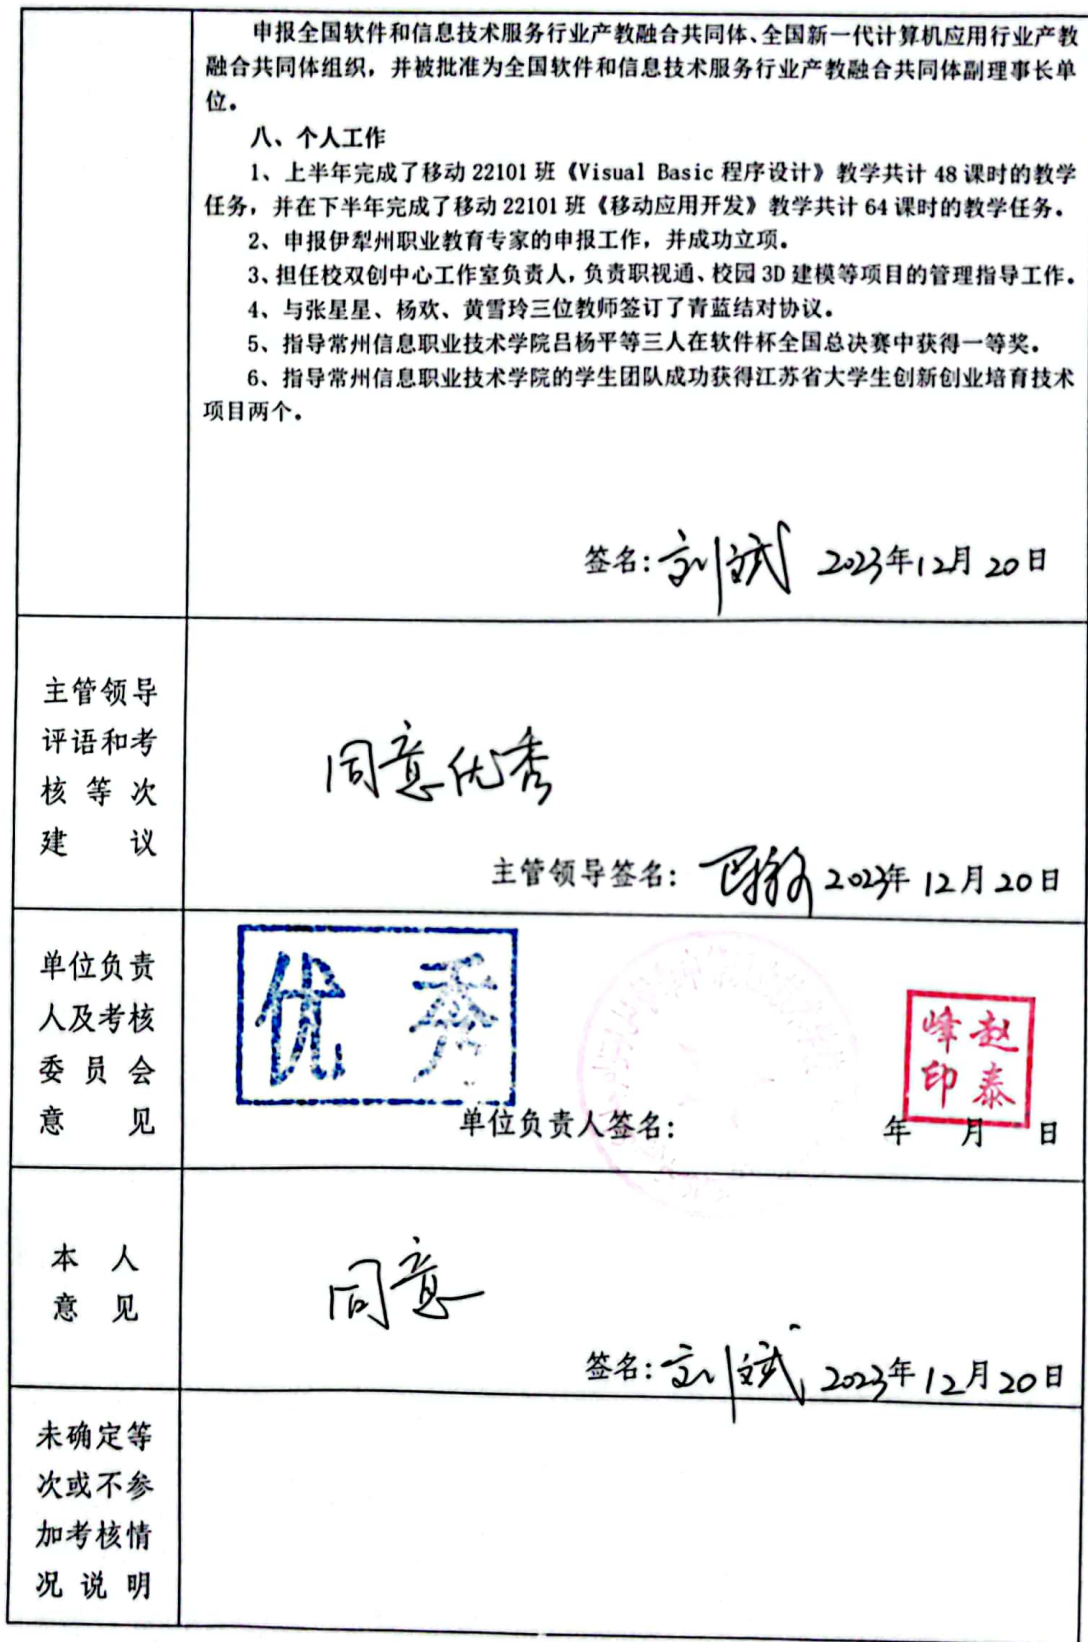 申报全国软件和信息技术服务行业产教融合共同体、全国新一代计算机应用行业产教
融合共同体组织，并被批准为全国软件和信息技术服务行业产教融合共同体副理事长单
位。
八、个人工作
1、上半年完成了移动 22101 班《Visual Basic 程序设计》教学共计 48 课时的教学
任务，并在下半年完成了移动 22101 班《移动应用开发》教学共计 64 课时的教学任务。
2、申报伊犁州职业教育专家的申报工作，并成功立项。
3、担任校双创中心工作室负责人，负责职视通、校园 3D 建模等项目的管理指导工作。
4、与张星星、杨欢、黄雪玲三位教师签订了青蓝结对协议。
5、指导常州信息职业技术学院吕杨平等三人在软件杯全国总决赛中获得一等奖。
6、指导常州信息职业技术学院的学生团队成功获得江苏省大学生创新创业培育技术
项目两个。
签名：刘斌 2023年12月20日
主管领导
评语和考
核等次
建议
同意优秀
主管领导签名： 2023年12月20日
单位负责
人及考核
委员会
意见
优秀
赵泰
峰印
单位负责人签名： 年 月 日
本人
意见
同意
签名：刘斌 2023年12月20日
未确定等
次或不参
加考核情
况说明